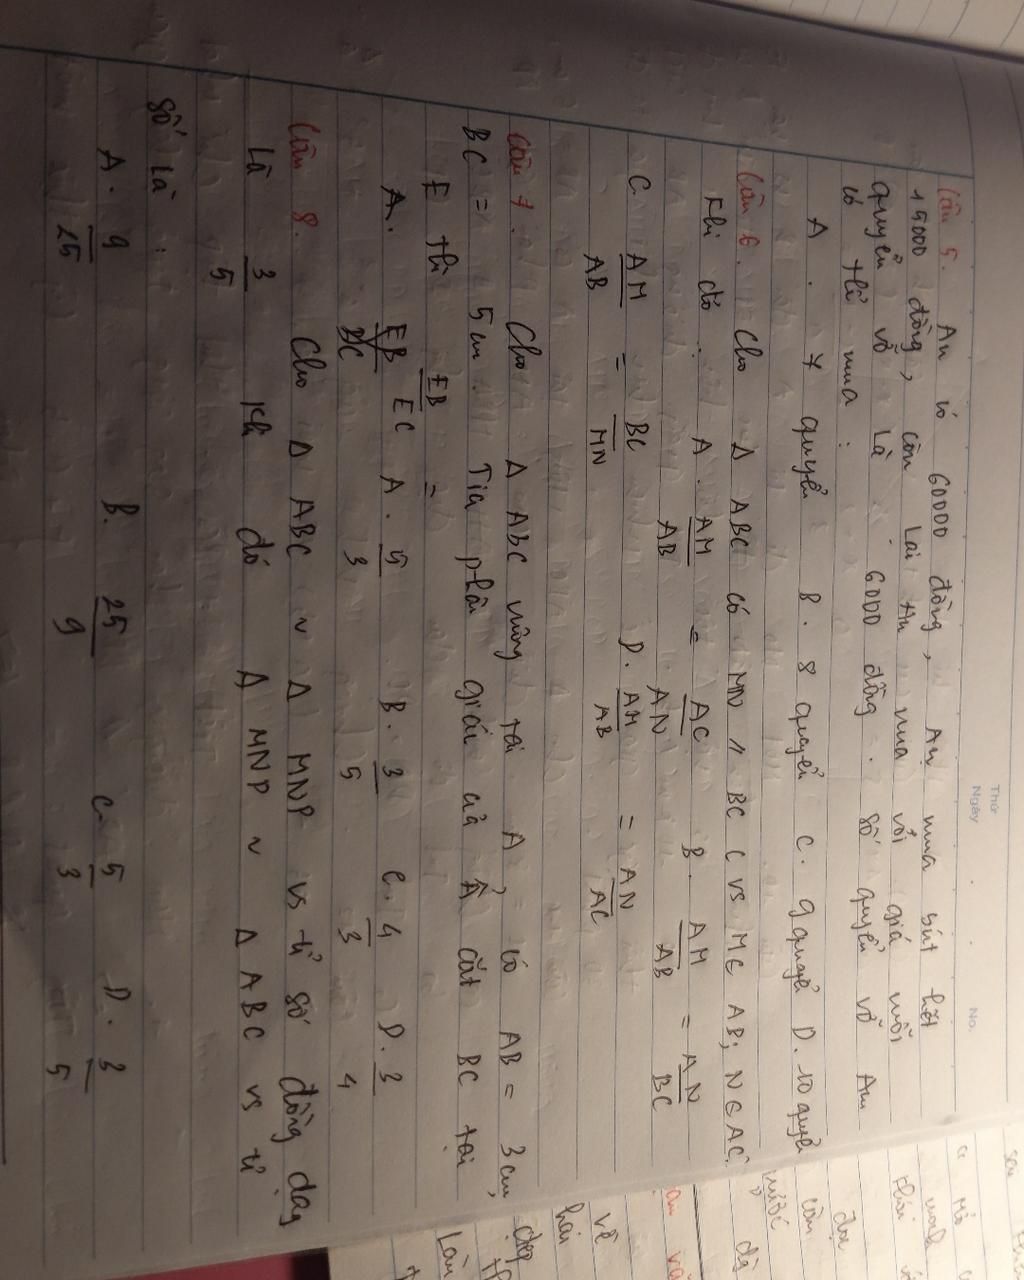 Thứ
Ngày . . No.
Câu 5. An có 60000 đồng, An mua bút hết
15000 đồng, còn lại An mua với giá mỗi
quyển vở là 6000 đồng. số quyển vở An
có thể mua :
A. 7 quyển B. 8 quyển C. 9 quyển D. 10 quyển
Câu 6. Cho Δ ABC có MN // BC ( vs M∈ AB; N∈AC)
Khi đó : A. AM/AB = AC/AN B. AM/AB = AN/BC
C. AM/AB = BC/MN D. AM/AB = AN/AC
Câu 7. Cho Δ ABC vuông tại A, có AB = 3cm,
BC = 5cm. Tia phân giác của Â cắt BC tại
E thì EB/EC =
A. 5/3 B. 3/5 C. 4/3 D. 3/4
Câu 8. Cho Δ ABC ~ Δ MNP vs tỉ số đồng dạg
là 3/5 khi đó Δ MNP ~ Δ ABC vs tỉ
số là :
A. 9/25 B. 25/9 C 5/3 D. 3/5